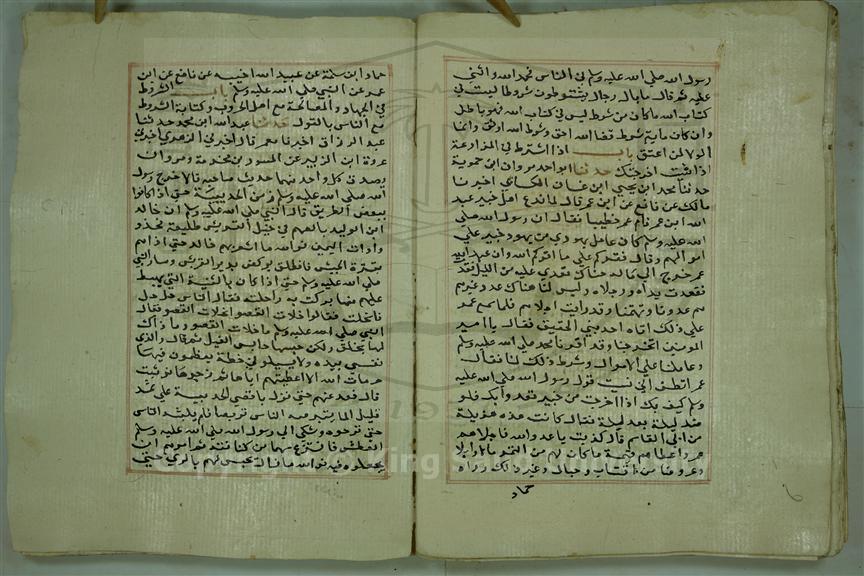 رسول الله صلي الله عليه وسلم في الناس فحمد الله واثني
عليه ثم قال ما بال رجال يشترطون شروطا ليست في
كتاب الله ما كان من شرط ليس في كتاب الله فهو باطل
وان كان ماية شرط قضا الله احق وشرط الله اوثق وانما
الولا لمن اعتق باب اذا اشترط في المزارعة
اذا شئت اخرجتك حدثنا ابو احمد مرار ابن حموية
حدثنا محمد ابن يحيي ابن غسان الكناني اخبرنا
مالك عن نافع عن ابن عمر قال لما فدع اهل خيبر عبد
الله ابن عمر قام عمر خطيبا فقال ان رسول الله صلي
الله عليه وسلم كان عامل يهودي من يهود خيبر علي
اموالهم وقال نقركم علي ما اقركم الله وان عبد الله ابن
عمر خرج الي ماله هناك فعدي عليه من الليل ففد
ففدعت يداه ورجلاه وليس لنا هناك عدو غيرهم
هم عدونا وتهمتنا وقد رايت اجلاهم فلما اجمع عمر
علي ذلك اتاه احد بني الحقيق فقال يا امير
المومنين اتخرجنا وقد اقرنا محمد صلي الله عليه وسلم
وعاملنا علي الاموال وشرط ذلك لنا فقال
عمر اظننت اني نسيت قول رسول الله صلي الله عليه
وسلم كيف بك اذا اخرجت من خيبر تعدو بك قلو
صك ليلة بعد ليلة فقال كانت هذه هزيلة
من ابي القاسم قال كذبت يا عدو الله فاجلاهم
عمر واعطاهم قيمة ما كان لهم من الثمر مالا وابلا
وعروضا من اقتاب وحبال وغير ذلك رواه
حماد
حماد ابن سلمة عن عبيد الله احسبه عن نافع عن ابن
عمر عن النبي صلي الله عليه وسلم باب الشروط
في الجهاد والمصالحة مع اهل الحروب وكتابة الشروط
مع الناس بالقول حدثنا عبد الله ابن محمد حدثنا
عبد الرزاق اخبرنا معمر قال اخبرني الزهري اخبرني
عروة ابن الزبير عن المسور بن مخرمة ومروان
يصدق كل واحد منهما حديث صاحبه قالا خرج رسول
الله صلي الله عليه وسلم زمن الحديبية حتي اذا كانوا
ببعض الطريق قال النبي صلي الله عليه وسلم ان خالد
ابن الوليد بالغميم في خيل لقريش طليعة فخذو
ذات اليمين فوالله ما شعر بهم خالد حتي اذا هم
بقترة الجيش فانطلق يركض نذيرا لقريش وسار النبي
صلي الله عليه وسلم حتي اذا كان بالثنية التي يهبط
عليهم منها بركت به راحلته فقال الناس حل حل
فالحت فقالوا خلات القصوا خلات القصو فقال
النبي صلي الله عليه وسلم ما خلات القصو وما ذاك
لها بخلق ولكن حبسها حابس الفيل ثم قال والذي
نفسي بيده لا يسيلوني خطة يعظمون فيها
حرمات الله الا اعطيتهم اياها ثم زجرها فوثبت
قال فعدل عنهم حتي نزل باقصي الحديبية علي ثمد
قليل الما يتبرضه الناس تبرضا فلم يلبثه الناس
حتي نزحوه وشكي الي رسول الله صلي الله عليه وسلم
العطش فانتزع سهما من كنانته ثم امرهم ان
يجعلوه فيه فوالله ما زال يجيش لهم بالري حتي